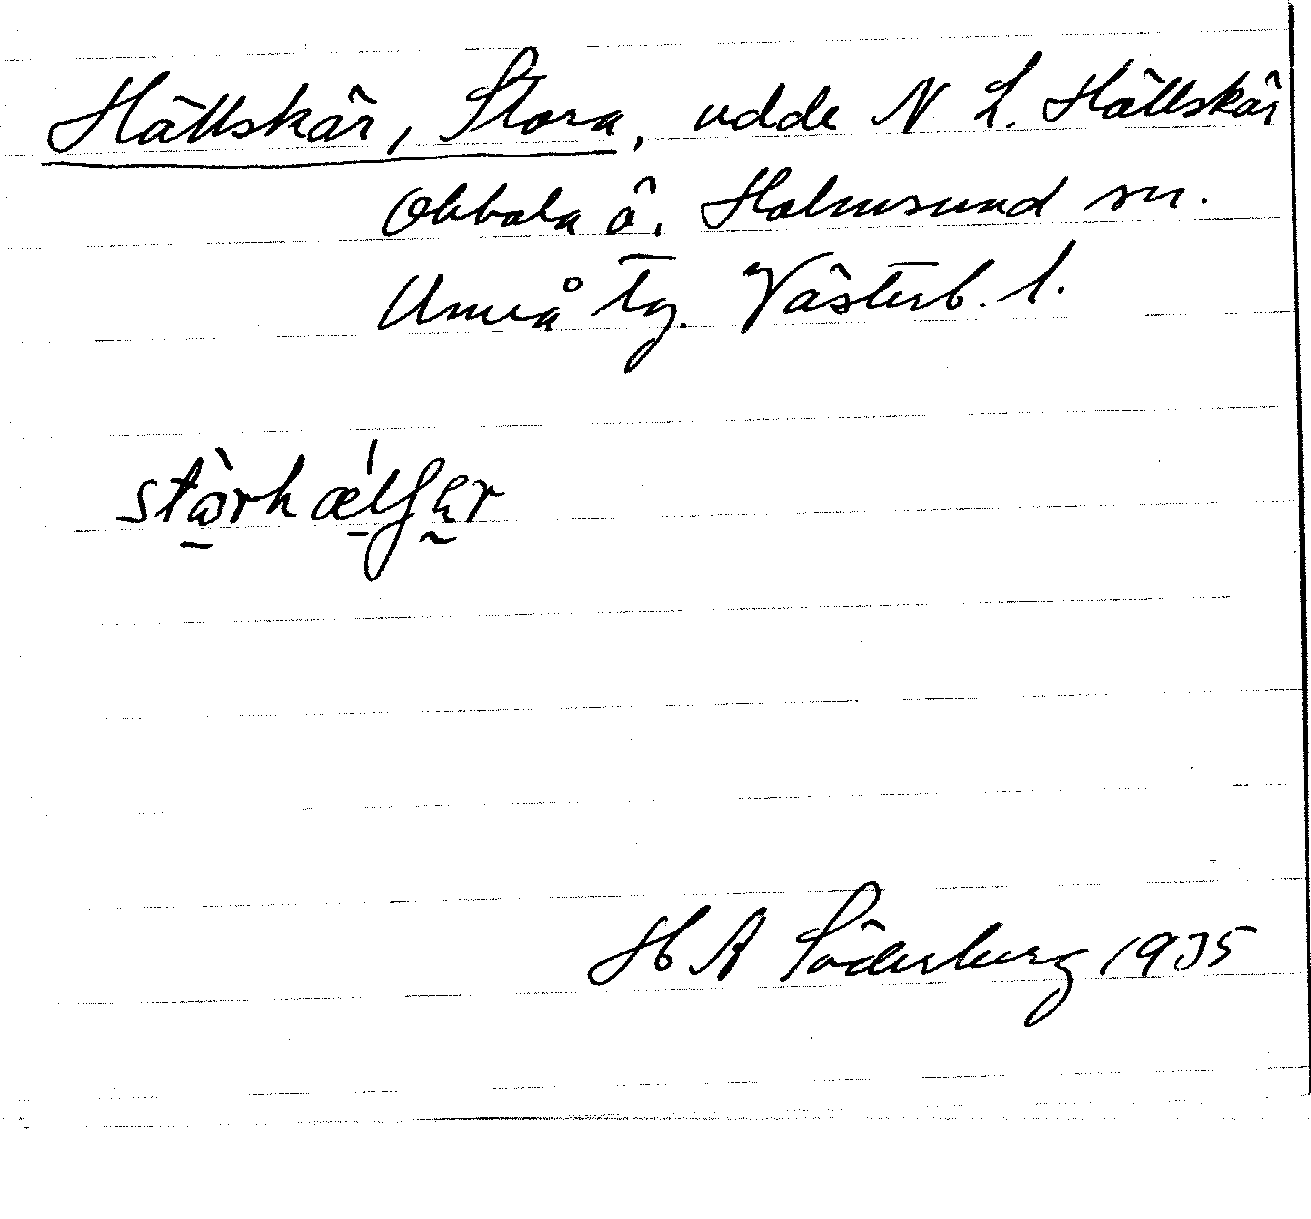 Hällskär, Stora, udde N L. Hällskär
Obbola ö. Holmsund sn.
Umeå tg. Västerb. l.
H A Söderberg 1935